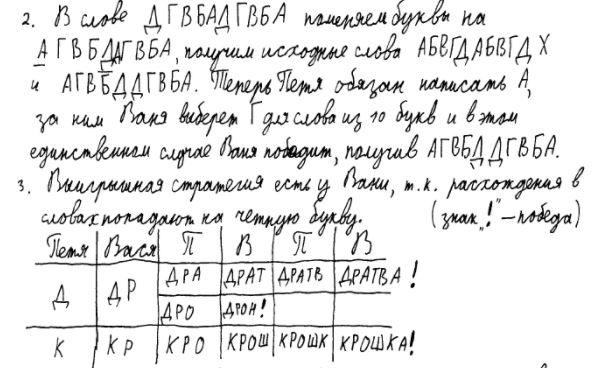 2. В слове ДГВБАДГВБА поменяем буквы на
АГВБДДГВБА, получим исходные слова АБВГДАБВГДХ
и АГВБДДГВБА. Теперь Петя обязан написать А,
за ним Ваня выберет Г для слова из 10 букв и в этом
единственном случае Ваня победит, получив АГВБДДГВБА.
3. Выигрышная стратегия есть у Вани, т.к. расхождения в
словах попадают на четную букву. (знак „!" – победа)
Петя Вася П В П В
Д ДР ДРА ДРАТ ДРАТВ ДРАТВА !
ДРО ДРОН!
К КР КРО КРОШ КРОШК КРОШКА!